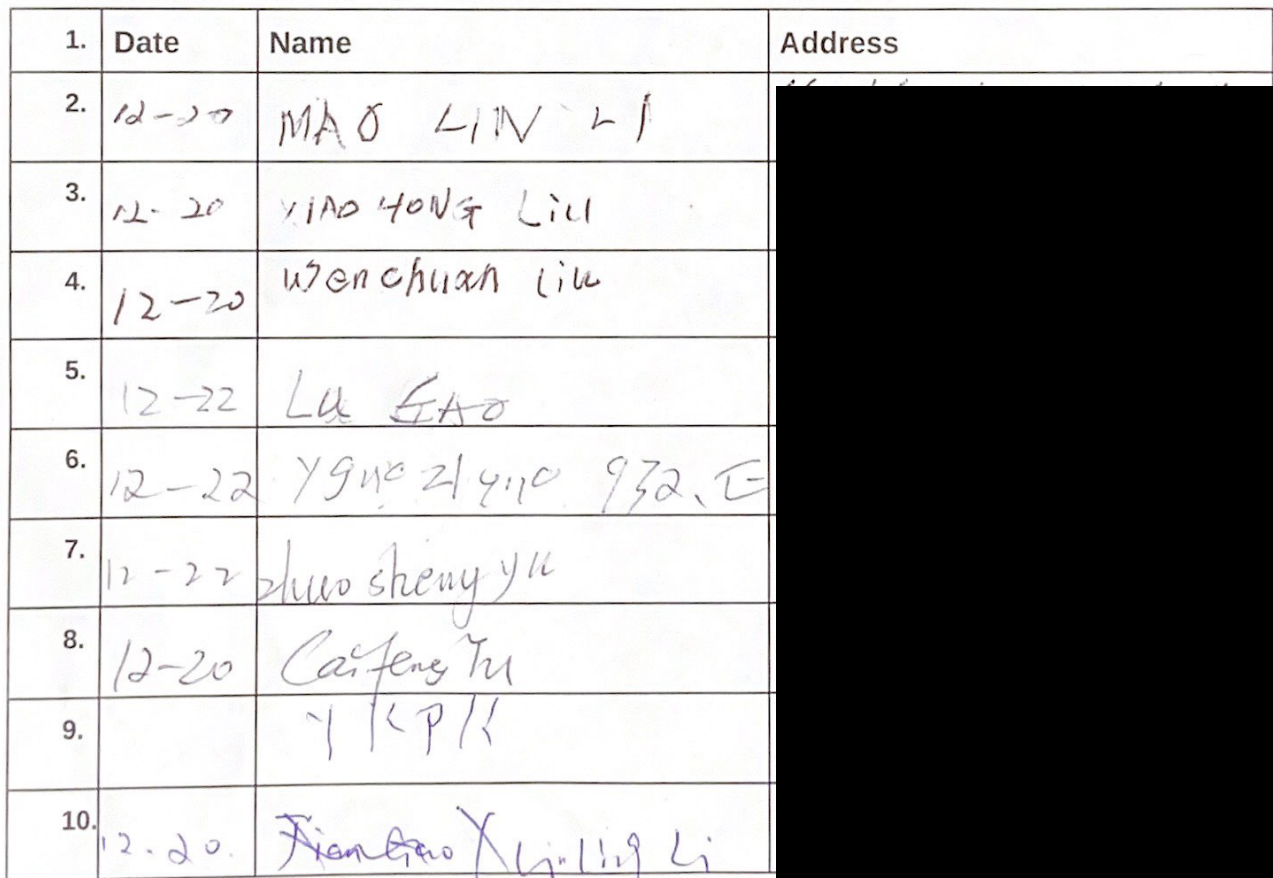 1. Date Name Address
2. 12-20 MAO LIN LI
3. 12-20 XIAO HONG LiU
4. 12-20 Wenchuan Liu
5. 12-22 Lu GAO
6. 12-22 932.E
7. 12-22 zhuo sheng yu
8. 12-20 Caifeng Yu
9. Y K P K
10. 12.20. Li